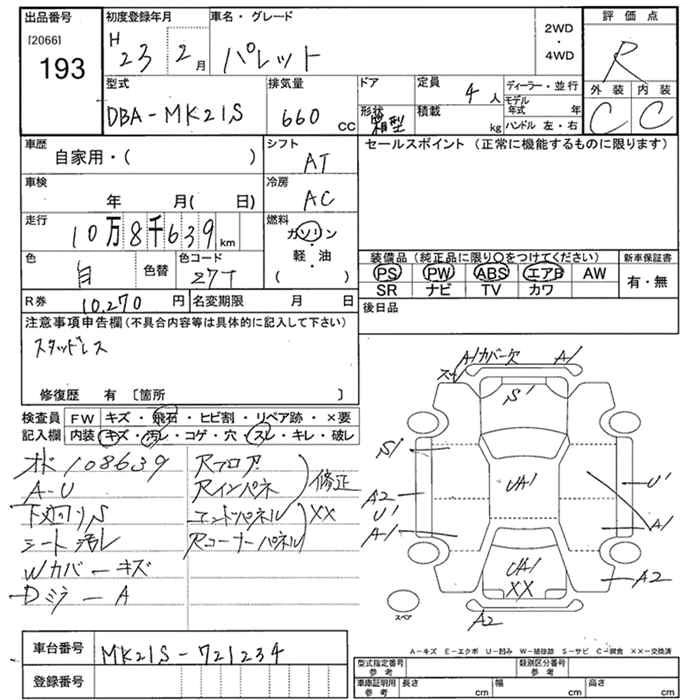 出品番号
[2066]
193
初度登録年月
H 23 2月
車名・グレード
パレット
2WD
・
4WD
評価点
R
外装 内装
C C
型式
DBA-MK21S
排気量
660 CC
ドア
形状
箱型
定員
4人
積載
kg
ディーラー・並行
モデル年式 年
ハンドル 左・右
車歴
自家用・( )
シフト
AT
セールスポイント (正常に機能するものに限ります)
車検
年 月( 日)
冷房
AC
走行
10万8千639km
燃料
ガソリン
・
軽・油
・
( )
色
色替
色コード
Z7T
装備品 (純正品に限り○をつけてください)
新車保証書
PS PW ABS エアB AW
SR ナビ TV カワ
有・無
R券
10.270円
名変期限 月 日
後日品
注意事項申告欄 (不具合内容等は具体的に記入して下さい)
スタッドレス
修復歴 有 〔箇所 〕
検査員記入欄
FW キズ・飛石・ヒビ割・リペア跡・×要
内装 キズ・汚レ・コゲ・穴・スレ・キレ・破レ
108639
A-U
下廻りS
シート汚レ
Wカバーキズ
Dミラ-A
Rフロア
Rインパネ
エンドパネル
Rコーナーパネル
修正
XX
A1カバー欠
A1
S1
S1
A2
U1
A-1
UA1
U1
A1
UA1
XX
A2
A2
スペア
A-キズ E-エクボ U-凹み W-補修跡 S-サビ C-腐食 XX-交換済
車台番号
MK21S-721234
登録番号
型式指定番号
参考
類別区分番号
参考
車庫証明用
参考
長さ cm
幅 cm
高さ cm